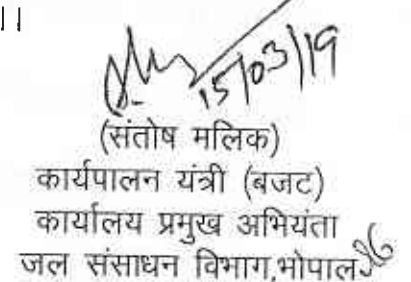 ।।
15/03/19
(संतोष मलिक)
कार्यपालन यंत्री (बजट)
कार्यालय प्रमुख अभियंता
जल संसाधन विभाग,भोपाल